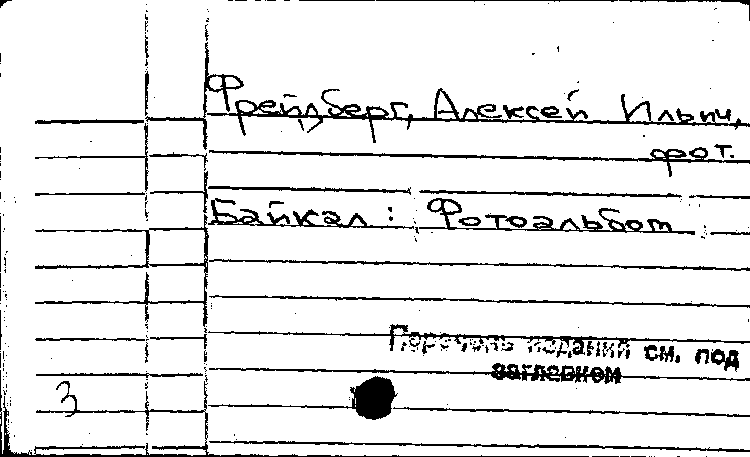 Фрейдберг, Алексей Ильич,
фот.
Байкал : Фотоальбом
Перечень изданий см. под
заглавием
3